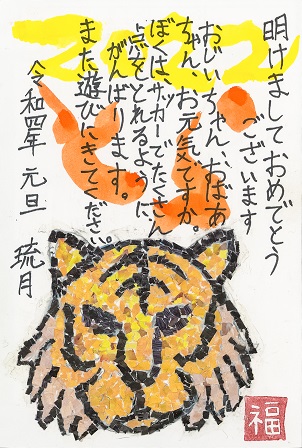 明けましておめでとう
ございます
おじいちゃん、おばあ
ちゃん、お元気ですか。
ぼくは、サッカーでたくさん
点をとれるように、
がんばります。
また遊びにきてください。
令和四年 元旦
琉月
福